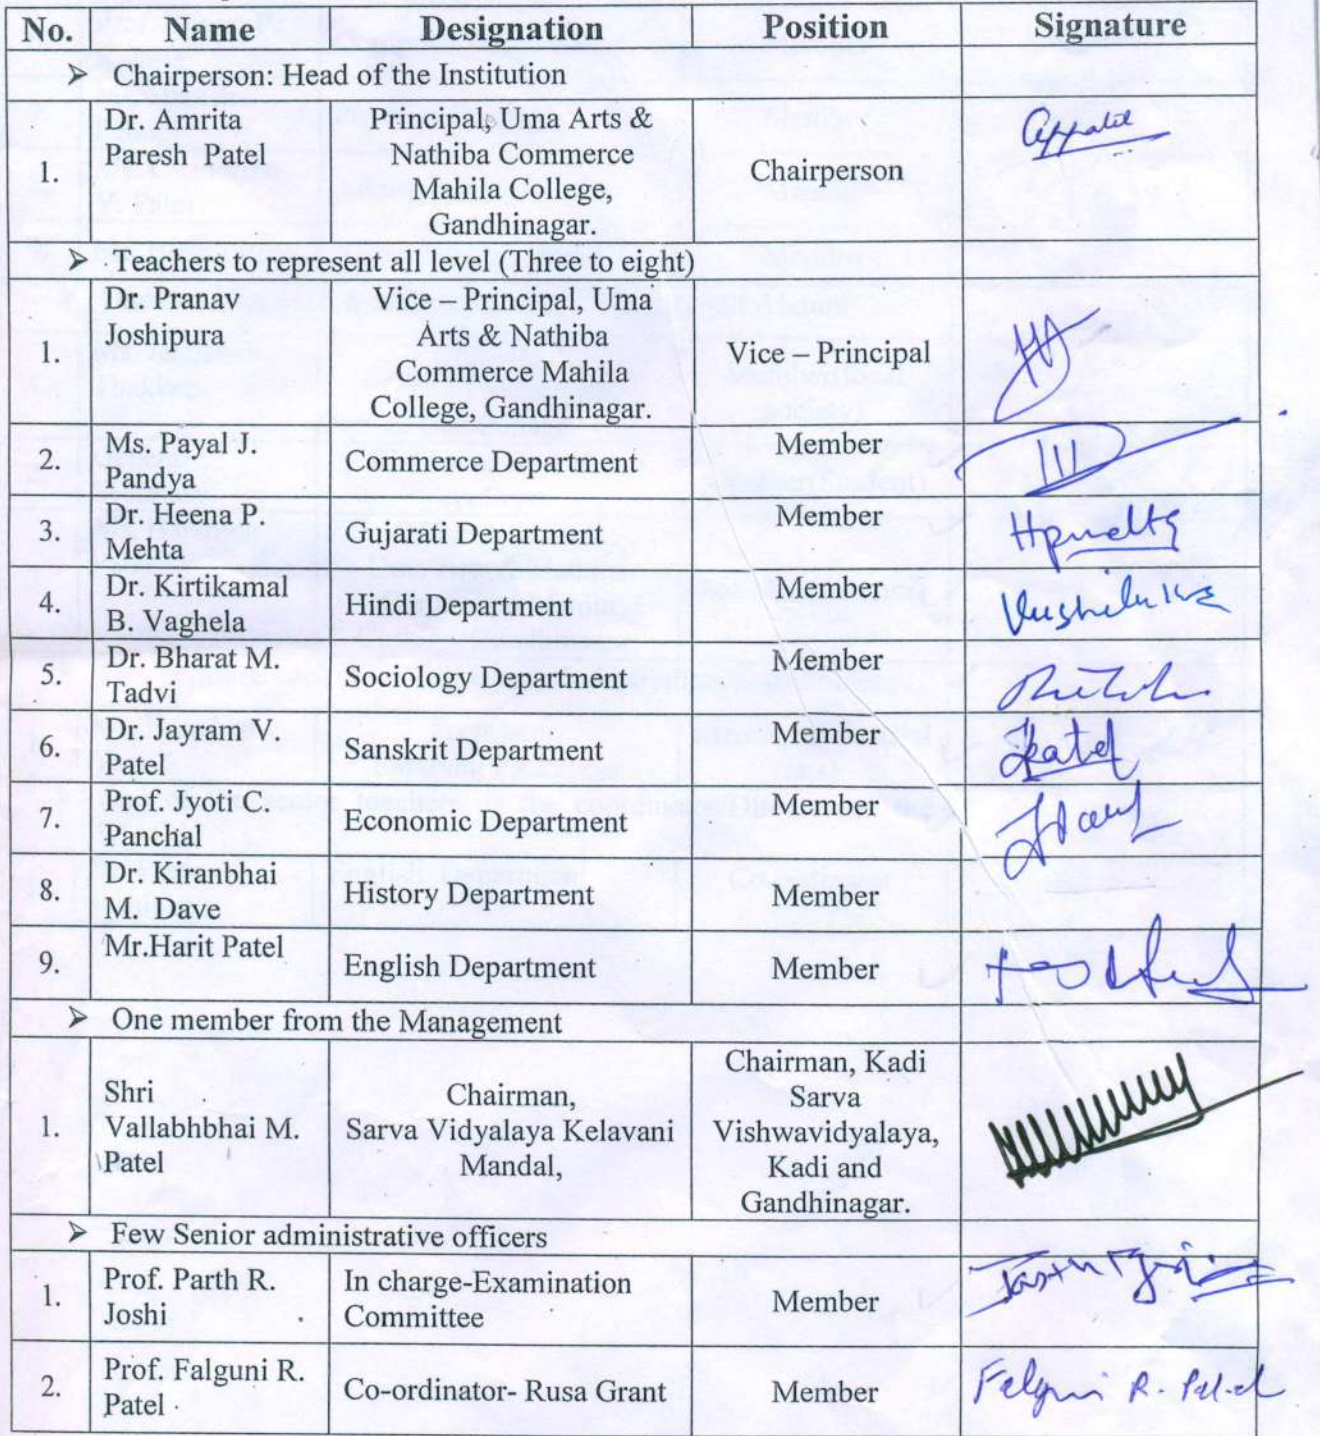 No. Name Designation Position Signature
➤ Chairperson: Head of the Institution
1. Dr. Amrita Paresh Patel Principal, Uma Arts & Nathiba Commerce Mahila College, Gandhinagar. Chairperson
➤ Teachers to represent all level (Three to eight)
1. Dr. Pranav Joshipura Vice – Principal, Uma Arts & Nathiba Commerce Mahila College, Gandhinagar. Vice – Principal
2. Ms. Payal J. Pandya Commerce Department Member
3. Dr. Heena P. Mehta Gujarati Department Member
4. Dr. Kirtikamal B. Vaghela Hindi Department Member
5. Dr. Bharat M. Tadvi Sociology Department Member
6. Dr. Jayram V. Patel Sanskrit Department Member
7. Prof. Jyoti C. Panchal Economic Department Member
8. Dr. Kiranbhai M. Dave History Department Member
9. Mr.Harit Patel English Department Member
➤ One member from the Management
1. Shri Vallabhbhai M. Patel Chairman, Sarva Vidyalaya Kelavani Mandal, Chairman, Kadi Sarva Vishwavidyalaya, Kadi and Gandhinagar.
➤ Few Senior administrative officers
1. Prof. Parth R. Joshi In charge-Examination Committee Member
2. Prof. Falguni R. Patel Co-ordinator- Rusa Grant Member Falguni R. Patel